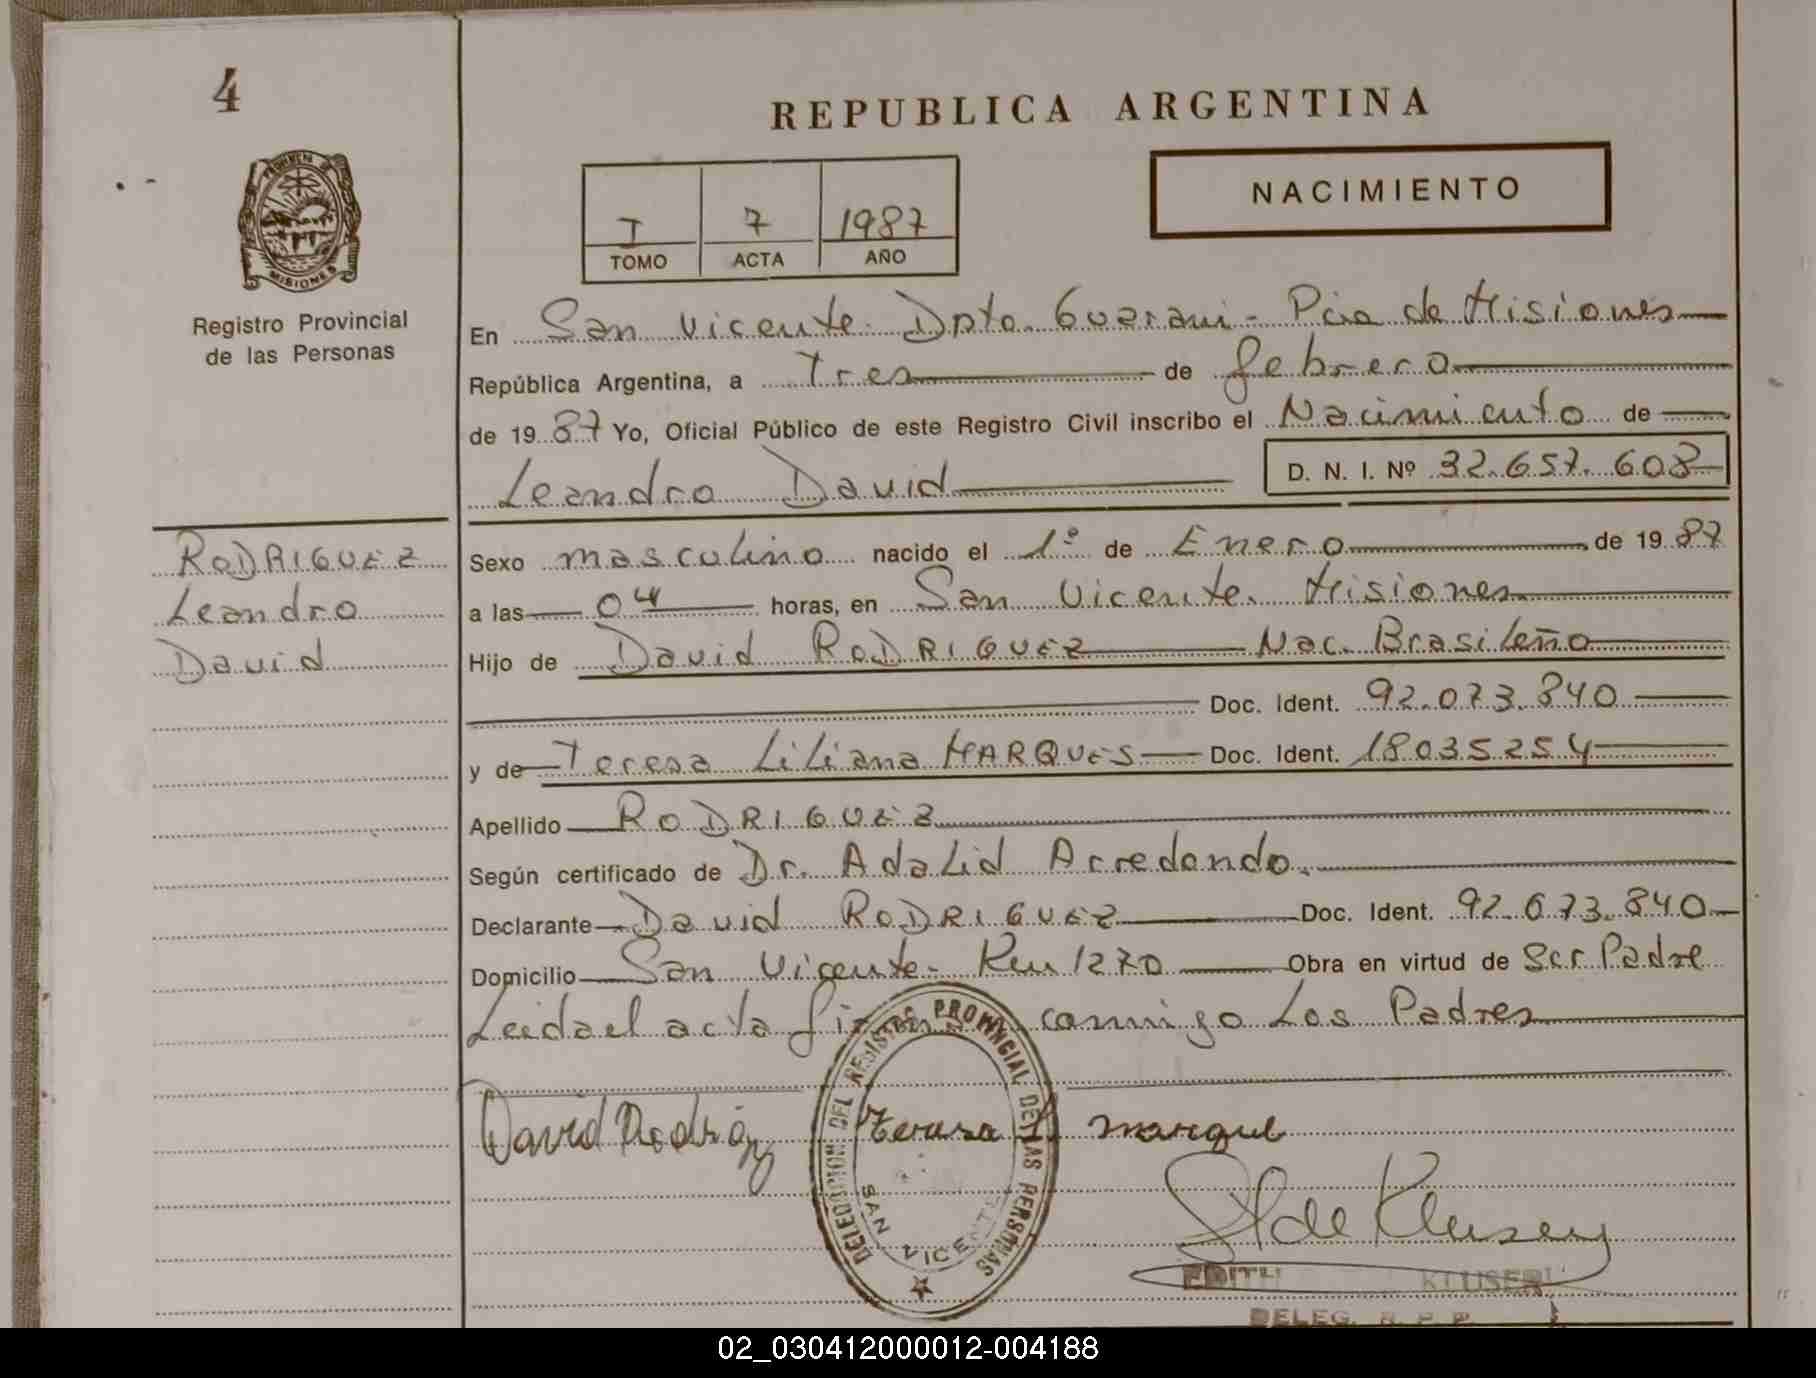 4
REPUBLICA ARGENTINA
NACIMIENTO
I 7 1987
TOMO ACTA AÑO
PROVINCIA DE
MISIONES
Registro Provincial
de las Personas
En San Vicente. Dpto. Guarani - Pcia de Misiones
República Argentina, a Tres de febrero
de 1987 Yo, Oficial Público de este Registro Civil inscribo el Nacimiento de
Leandro David D. N. I. Nº 32.657.608
RODRIGUEZ
Leandro
David
Sexo masculino nacido el 1º de Enero de 1987
a las 04 horas, en San Vicente. Misiones
Hijo de David RODRIGUEZ Nac. Brasileño
Doc. Ident. 92.073.840
y de Teresa Liliana MARQUES Doc. Ident. 18.035.254
Apellido RODRIGUEZ
Según certificado de Dr. Adalid Arredondo.
Declarante David RODRIGUEZ Doc. Ident. 92.673.840
Domicilio San Vicente - Km 1270 Obra en virtud de Ser Padre
Leida el acta firman conmigo Los Padres
David Rodrig Teresa L marque
DELEGACION DEL REGISTRO PROVINCIAL DE LAS PERSONAS
SAN VICENTE
EDITH KLUSER
DELEG. R. P. P.
02_030412000012-004188